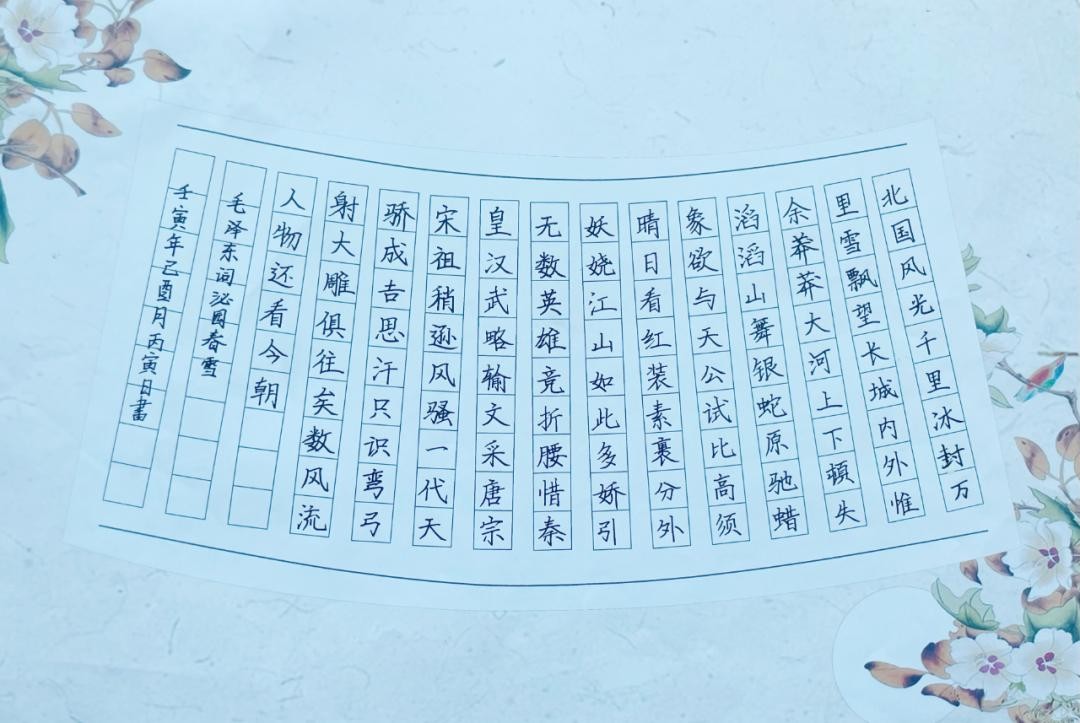 北国风光千里冰封万
里雪飘望长城内外惟
余莽莽大河上下顿失
滔滔山舞银蛇原驰蜡
象欲与天公试比高须
晴日看红装素裹分外
妖娆江山如此多娇引
无数英雄竞折腰惜秦
皇汉武略输文采唐宗
宋祖稍逊风骚一代天
骄成吉思汗只识弯弓
射大雕俱往矣数风流
人物还看今朝
毛泽东词沁园春雪
壬寅年己酉月丙寅日书